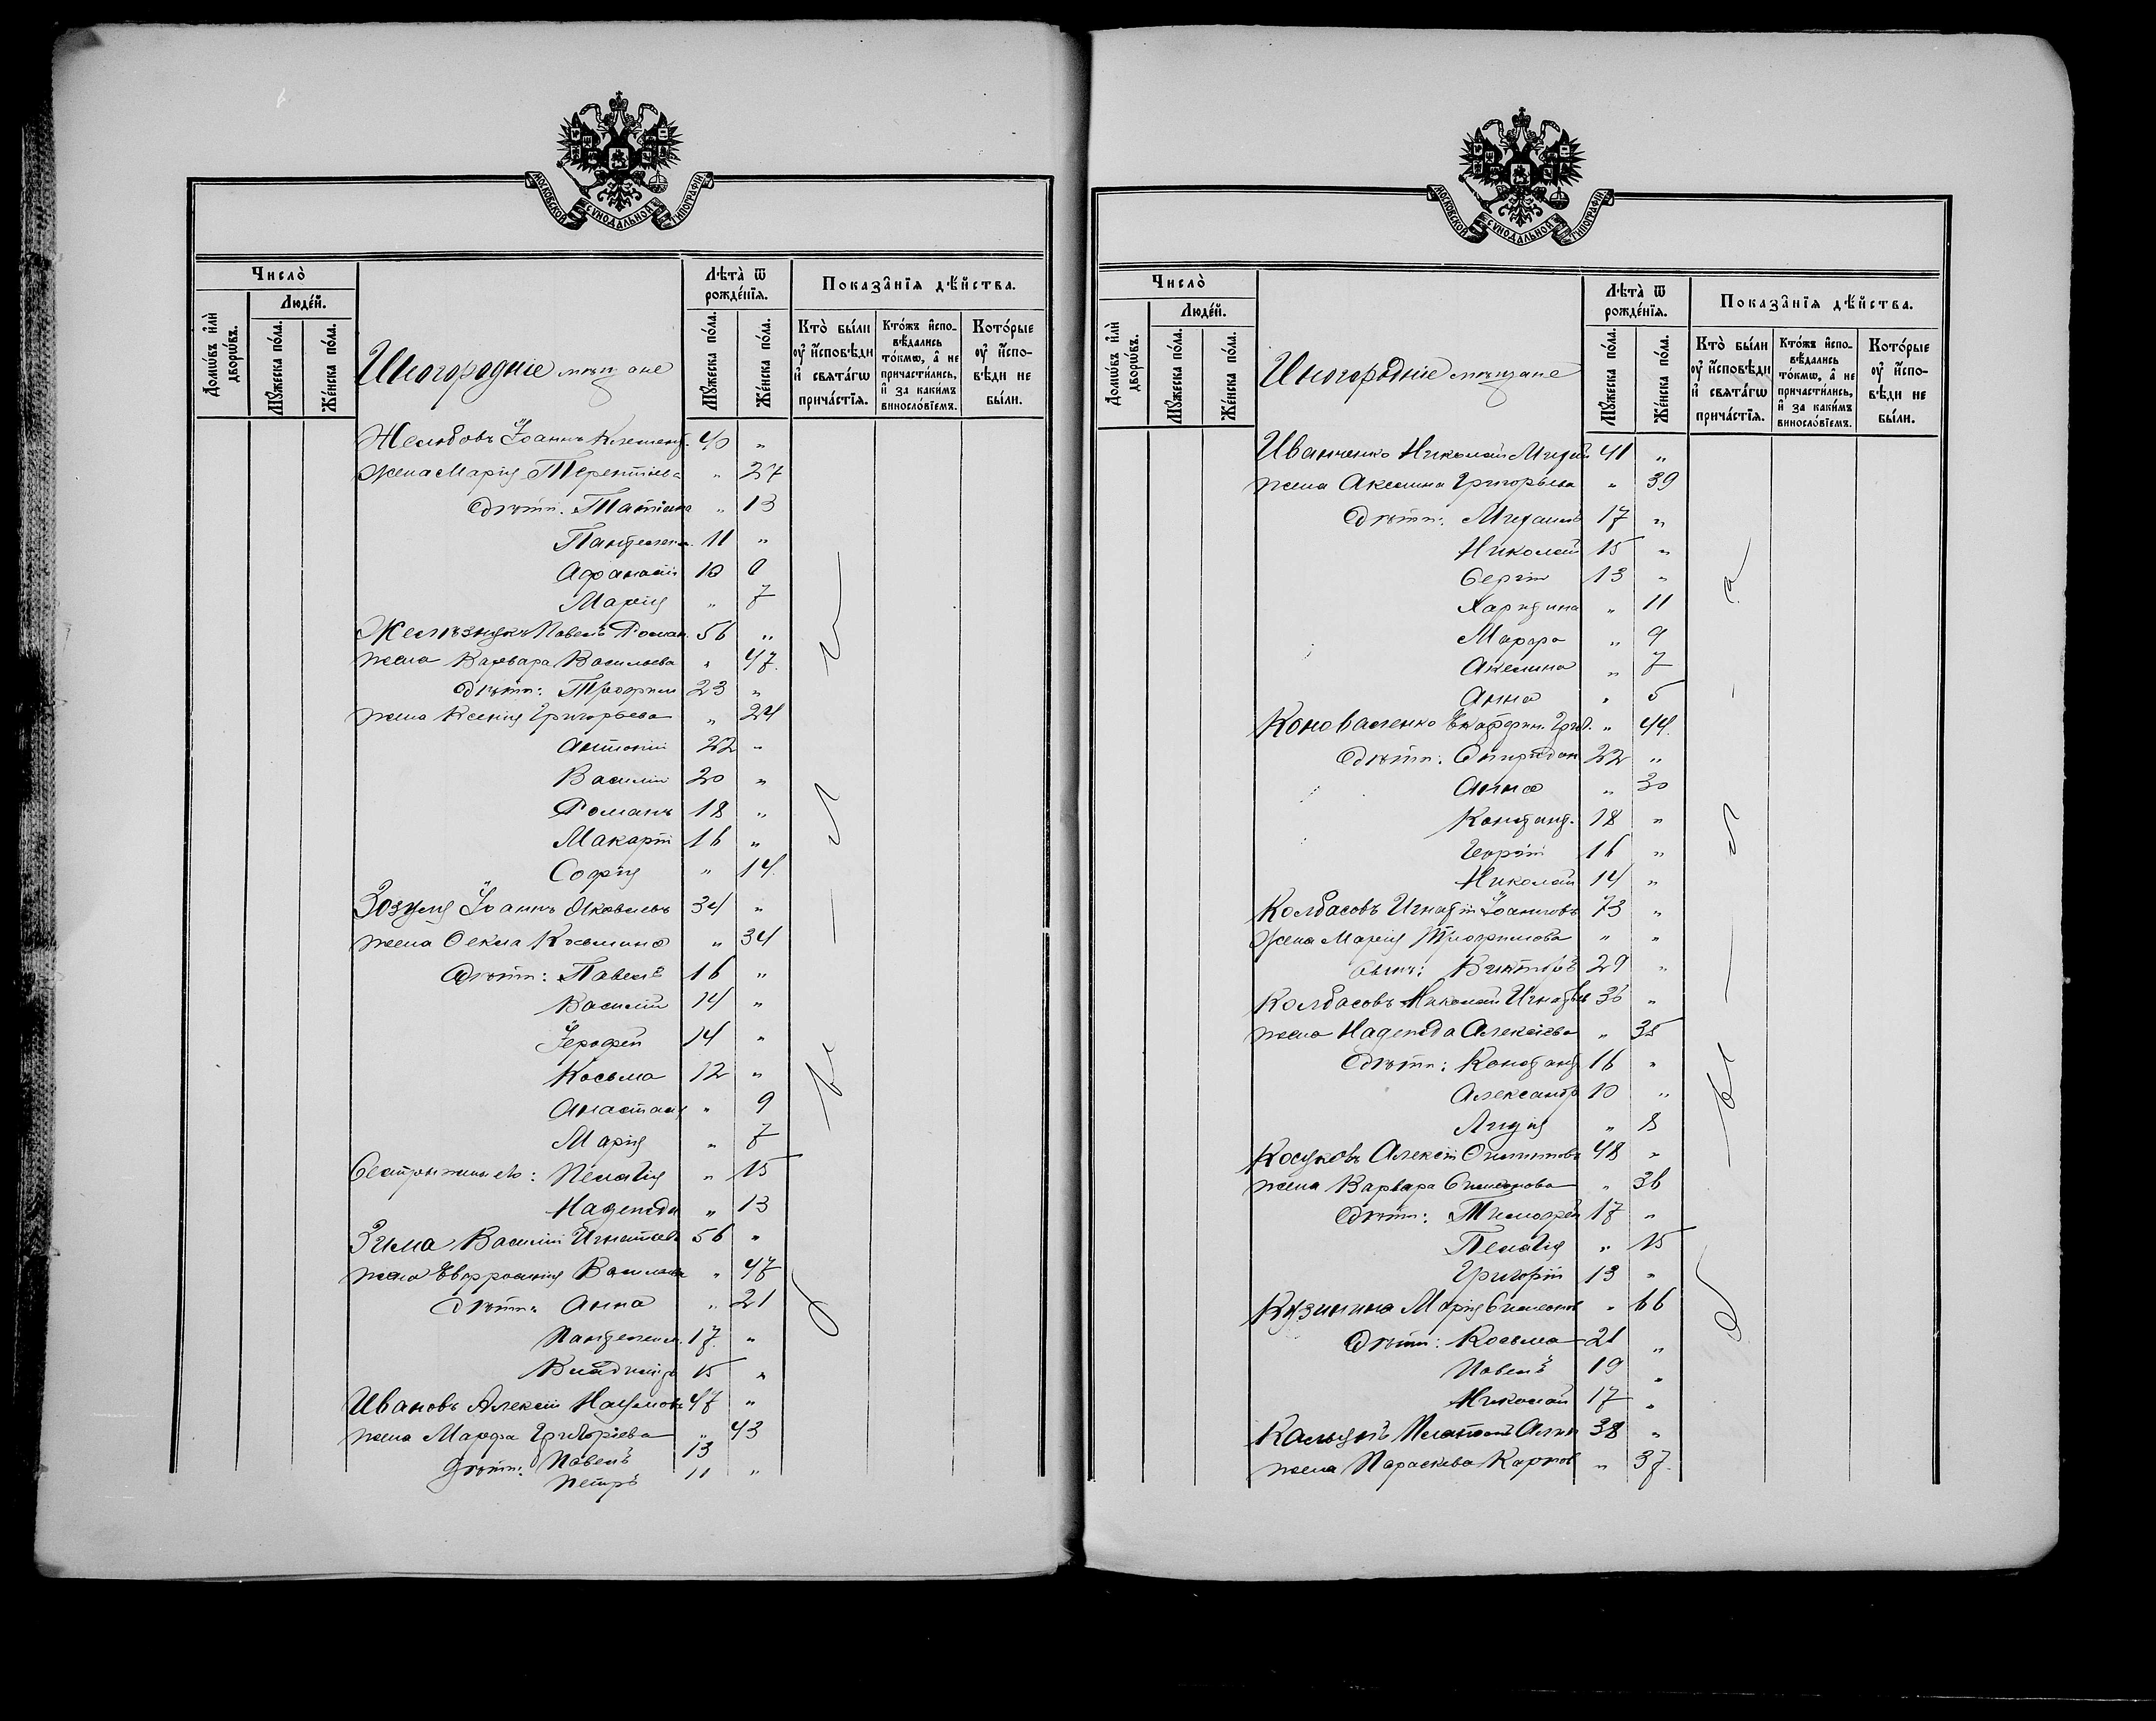 МОСКОВСКОЙ СѴНОДАЛЬНОЙ ТИПОГРАФІИ.
Число̀
Домѡ́въ и҆лѝ дворѡ́въ.
Люде́й.
Мꙋ́жеска по́ла.
Же́нска по́ла.
Иногородніе мѣщане
Лѣта̀ ѿ рожде́нїѧ.
Мꙋ́жеска по́ла.
Же́нска по́ла.
Показа̑нїѧ дѣ́йства.
Кто̀ бы́ли ᲂу҆ и҆́сповѣди и҆ свѧта́гѡ прича́стїѧ.
Кто́жъ и҆сповѣ́дались то́кмѡ, а҆ не причасти́лись, и҆ за каки́мъ винесло́вїемъ.
Кото́рые ᲂу҆ и҆́сповѣди не бы́ли.
Желюбовъ Іоаннъ Клемент. 40 „
жена Марія Терентіева „ 27
дѣти: Татіана „ 13
Пантелеим. 11 „
Афанасій 10 0
Марія „ 7
Павелъ Роман. 56 „
жена Варвара Васильева „ 47.
дѣти: Трофим 23 „
жена Ксенія Григорьева „ 24
Антоній 22 „
Василій 20 „
Романъ 18 „
Макарій 16 „
Софія „ 14.
Зозуля Іоаннъ Яковлевъ 34 „
жена Фекла Косьмина „ 34
дѣти: Павелъ 16 „
Василій 14 „
Іерофей 14 „
Косьма 12 „
Анастасія „ 9
Марія „ 7
Сестры жены его: Пелагія „ 15
Надежда „ 13
Зима Василій Игнатіевъ 56 „
жена Евфросинія Васильева „ 47
дѣти: Анна „ 21
Пантелеим. 17. „
Владиміръ 15 „
Ивановъ Алексій Наумовъ 47 „
жена Марфа Григоріева „ 43
дѣти: Павелъ 13
Петръ 11 „
МОСКОВСКОЙ СѴНОДАЛЬНОЙ ТИПОГРАФІИ.
Число̀
Домѡ́въ и҆лѝ дворѡ́въ.
Люде́й.
Мꙋ́жеска по́ла.
Же́нска по́ла.
Иногородніе мѣщане
Лѣта̀ ѿ рожде́нїѧ.
Мꙋ́жеска по́ла.
Же́нска по́ла.
Показа̑нїѧ дѣ́йства.
Кто̀ бы́ли ᲂу҆ и҆́сповѣди и҆ свѧта́гѡ прича́стїѧ.
Кто́жъ и҆сповѣ́дались то́кмѡ, а҆ не причасти́лись, и҆ за каки́мъ винесло́вїемъ.
Кото́рые ᲂу҆ и҆́сповѣди не бы́ли.
Иванченко Николай Михаи 41 „
жена Акелина Григорьева „ 39
дѣти: Михаилъ 17 „
Николай 15 „
Сергій 13 „
Харитина „ 11
Марфа „ 9
Акелина „ 7
Анна „ 5
Коноваленко Екатерин. Григ. „ 44.
дѣти: Спиридон 22 „
Анна „ 30
Констант. 18 „
Георгій 16 „
Николай 14 „
Колбасовъ Игнатій Іоанновъ 73 „
жена Марія Трофимова „ „
сынъ: Викторъ 29 „
Колбасовъ Николай Игнатьев 36 „
жена Надежда Алексіева „ 35
дѣти: Констант 16 „
Александр 10 „
Лидія „ 8
Алексій 48 „
жена Варвара Симеонова „ 36
дѣти: Тимофей 17 „
Пелагія „ 15
Григорій 13 „
Кузинина Марія Симеонов „ 66
дѣти: Косьма 21 „
Павелъ 19 „
Николай 17 „
Платонъ 38 „
жена Параскева Карпов „ 37.